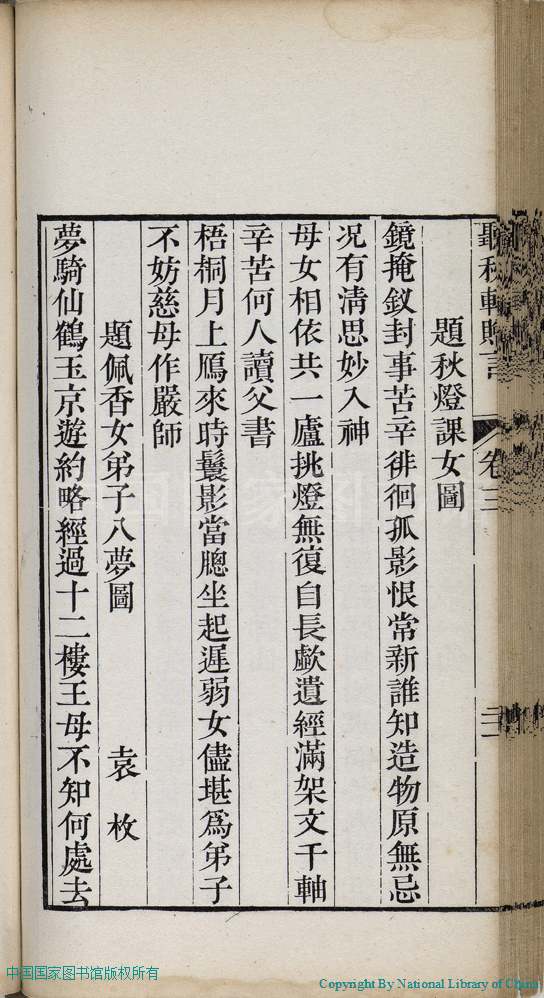 聽秋軒贈言 卷三 二
題秋燈課女圖
鏡掩釵封事苦辛徘徊孤影恨常新誰知造物原無忌
况有清思妙入神
母女相依共一廬挑燈無復自長歔遺經滿架文千軸
辛苦何人讀父書
梧桐月上鴈來時鬟影當牕坐起遲弱女儘堪爲弟子
不妨慈母作嚴師
題佩香女弟子八夢圖 袁枚
夢騎仙鶴玉京遊約略經過十二樓王母不知何處去
中国国家图书馆版权所有
Copyright By National Library of China